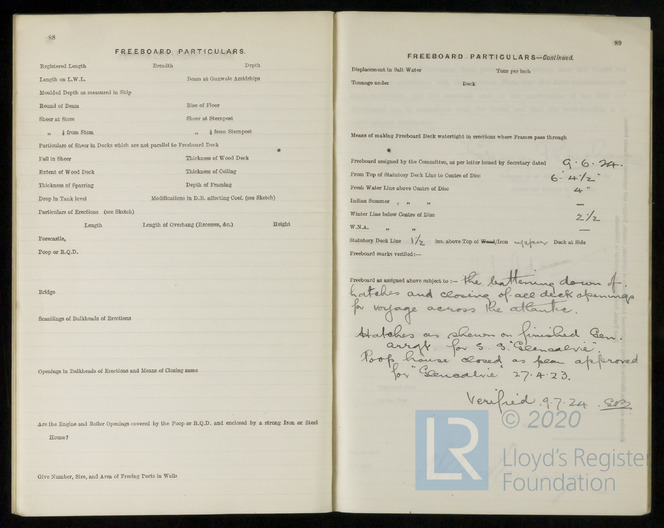 88
FREEBOARD PARTICULARS.
Registered Length Breadth Depth
Length on L.W.L. Beam at Gunwale Amidships
Moulded Depth as measured in Ship
Round of Beam Rise of Floor
Sheer at Stem Sheer at Sternpost
„ ¼ from Stem „ ¼ from Sternpost
Particulars of Sheer in Decks which are not parallel to Freeboard Deck
Fall in Sheer Thickness of Wood Deck
Extent of Wood Deck Thickness of Ceiling
Thickness of Sparring Depth of Framing
Drop in Tank level Modifications in D.B. affecting Coef. (see Sketch)
Particulars of Erections (see Sketch)
Length Length of Overhang (Recesses, &c.) Height
Forecastle,
Poop or R.Q.D.
Bridge
Scantlings of Bulkheads of Erections
Openings in Bulkheads of Erections and Means of Closing same
Are the Engine and Boiler Openings covered by the Poop or R.Q.D. and enclosed by a strong Iron or Steel
House?
Give Number, Size, and Area of Freeing Ports in Wells
89
FREEBOARD PARTICULARS—Continued.
Displacement in Salt Water Tons per inch
Tonnage under Deck
Means of making Freeboard Deck watertight in erections where Frames pass through
Freeboard assigned by the Committee, as per letter issued by Secretary dated 9.6.24.
From Top of Statutory Deck Line to Centre of Disc 6'. 4½"
Fresh Water Line above Centre of Disc 4"
Indian Summer „ „ „ —
Winter Line below Centre of Disc 2½
W.N.A. „ „ —
Statutory Deck Line 1½ ins. above Top of Wood/Iron upper Deck at Side
Freeboard marks verified:—
Freeboard as assigned above subject to:— the battening down of
hatches and closing of all deck openings
for voyage across the atlantic.
Hatches as shewn on finished Gen.
arrgt. for S.S. "Glencalvie".
Poop house closed as plan approved
for "Glencalvie" 27.4.23.
Verified 9.7.24
© 2020
LR
Lloyd's Register
Foundation